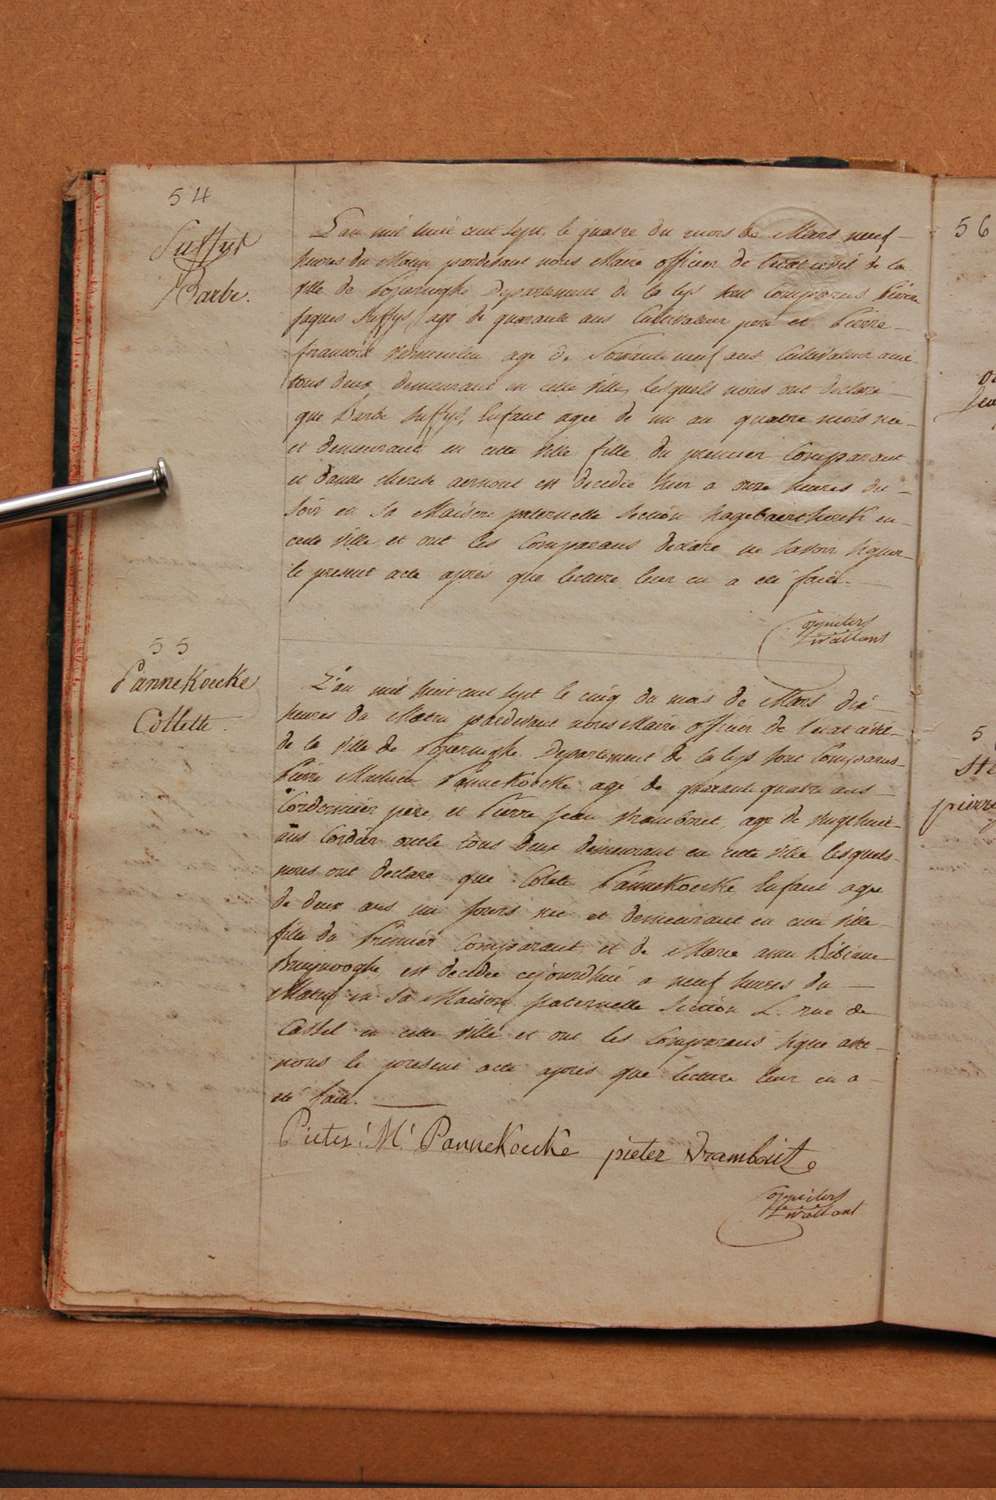 54
Suffys
Barbe.
L'an mil huit cent sept, le quatre du mois de Mars neuf
heures du Matin pardevant nous Maire officier de l'Etat civil de la
ville de Poperinghe Departement de la Lys sont Comparus Pierre
Jaques Suffys, age de quarante ans Cultivateur pere et Pierre
francois age de Soixante neuf ans Cultivateur ami
tous deux demeurant en cette ville, lesquels nous ont declaré
que Barbe Suffys, Enfant agee de un an quatre mois née
et demeurant en cette ville fille du premier Comparant
et d'anne therese est decedée hier a onze heures du
Soir en Sa Maison paternelle Section en
cette ville et ont les Comparans declaré ne savoir signer
le present acte après que lecture leur en a été faite.
55
PanneKoecke
Collette
L'an mil huit cent sept le cinq du mois de Mars dix
heures du Matin pardevant nous Maire officier de l'etat civil
de la ville de Poperinghe Departement de la Lys sont Comparus
Pierre Martin PanneKoecke agé de quarante quatre ans
Cordonnier pere, et Pierre Jean age de vingt huit
ans Cordier oncle tous deux demeurant en cette ville lesquels
nous ont declaré que Colete PanneKoecke Enfant agee
de deux ans un jours née et demeurant en cette ville
fille du Premier Comparant et de Marie anne Bibiane
est decedée cejourdhui a neuf heures du
Matin en Sa Maison paternelle Section L. rue de
Cassel en cette ville et ont les Comparans signé avec
nous le present acte après que lecture leur en a
été faite.
Pieter M. PanneKoecke pieter
56